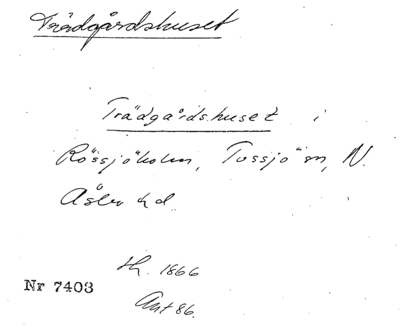 Trädgårdshuset
Trädgårdshuset i
Rössjöholm, Tossjö sn, N.
Åsbo hd.
th. 1866
Nr 7403
Ant 86.